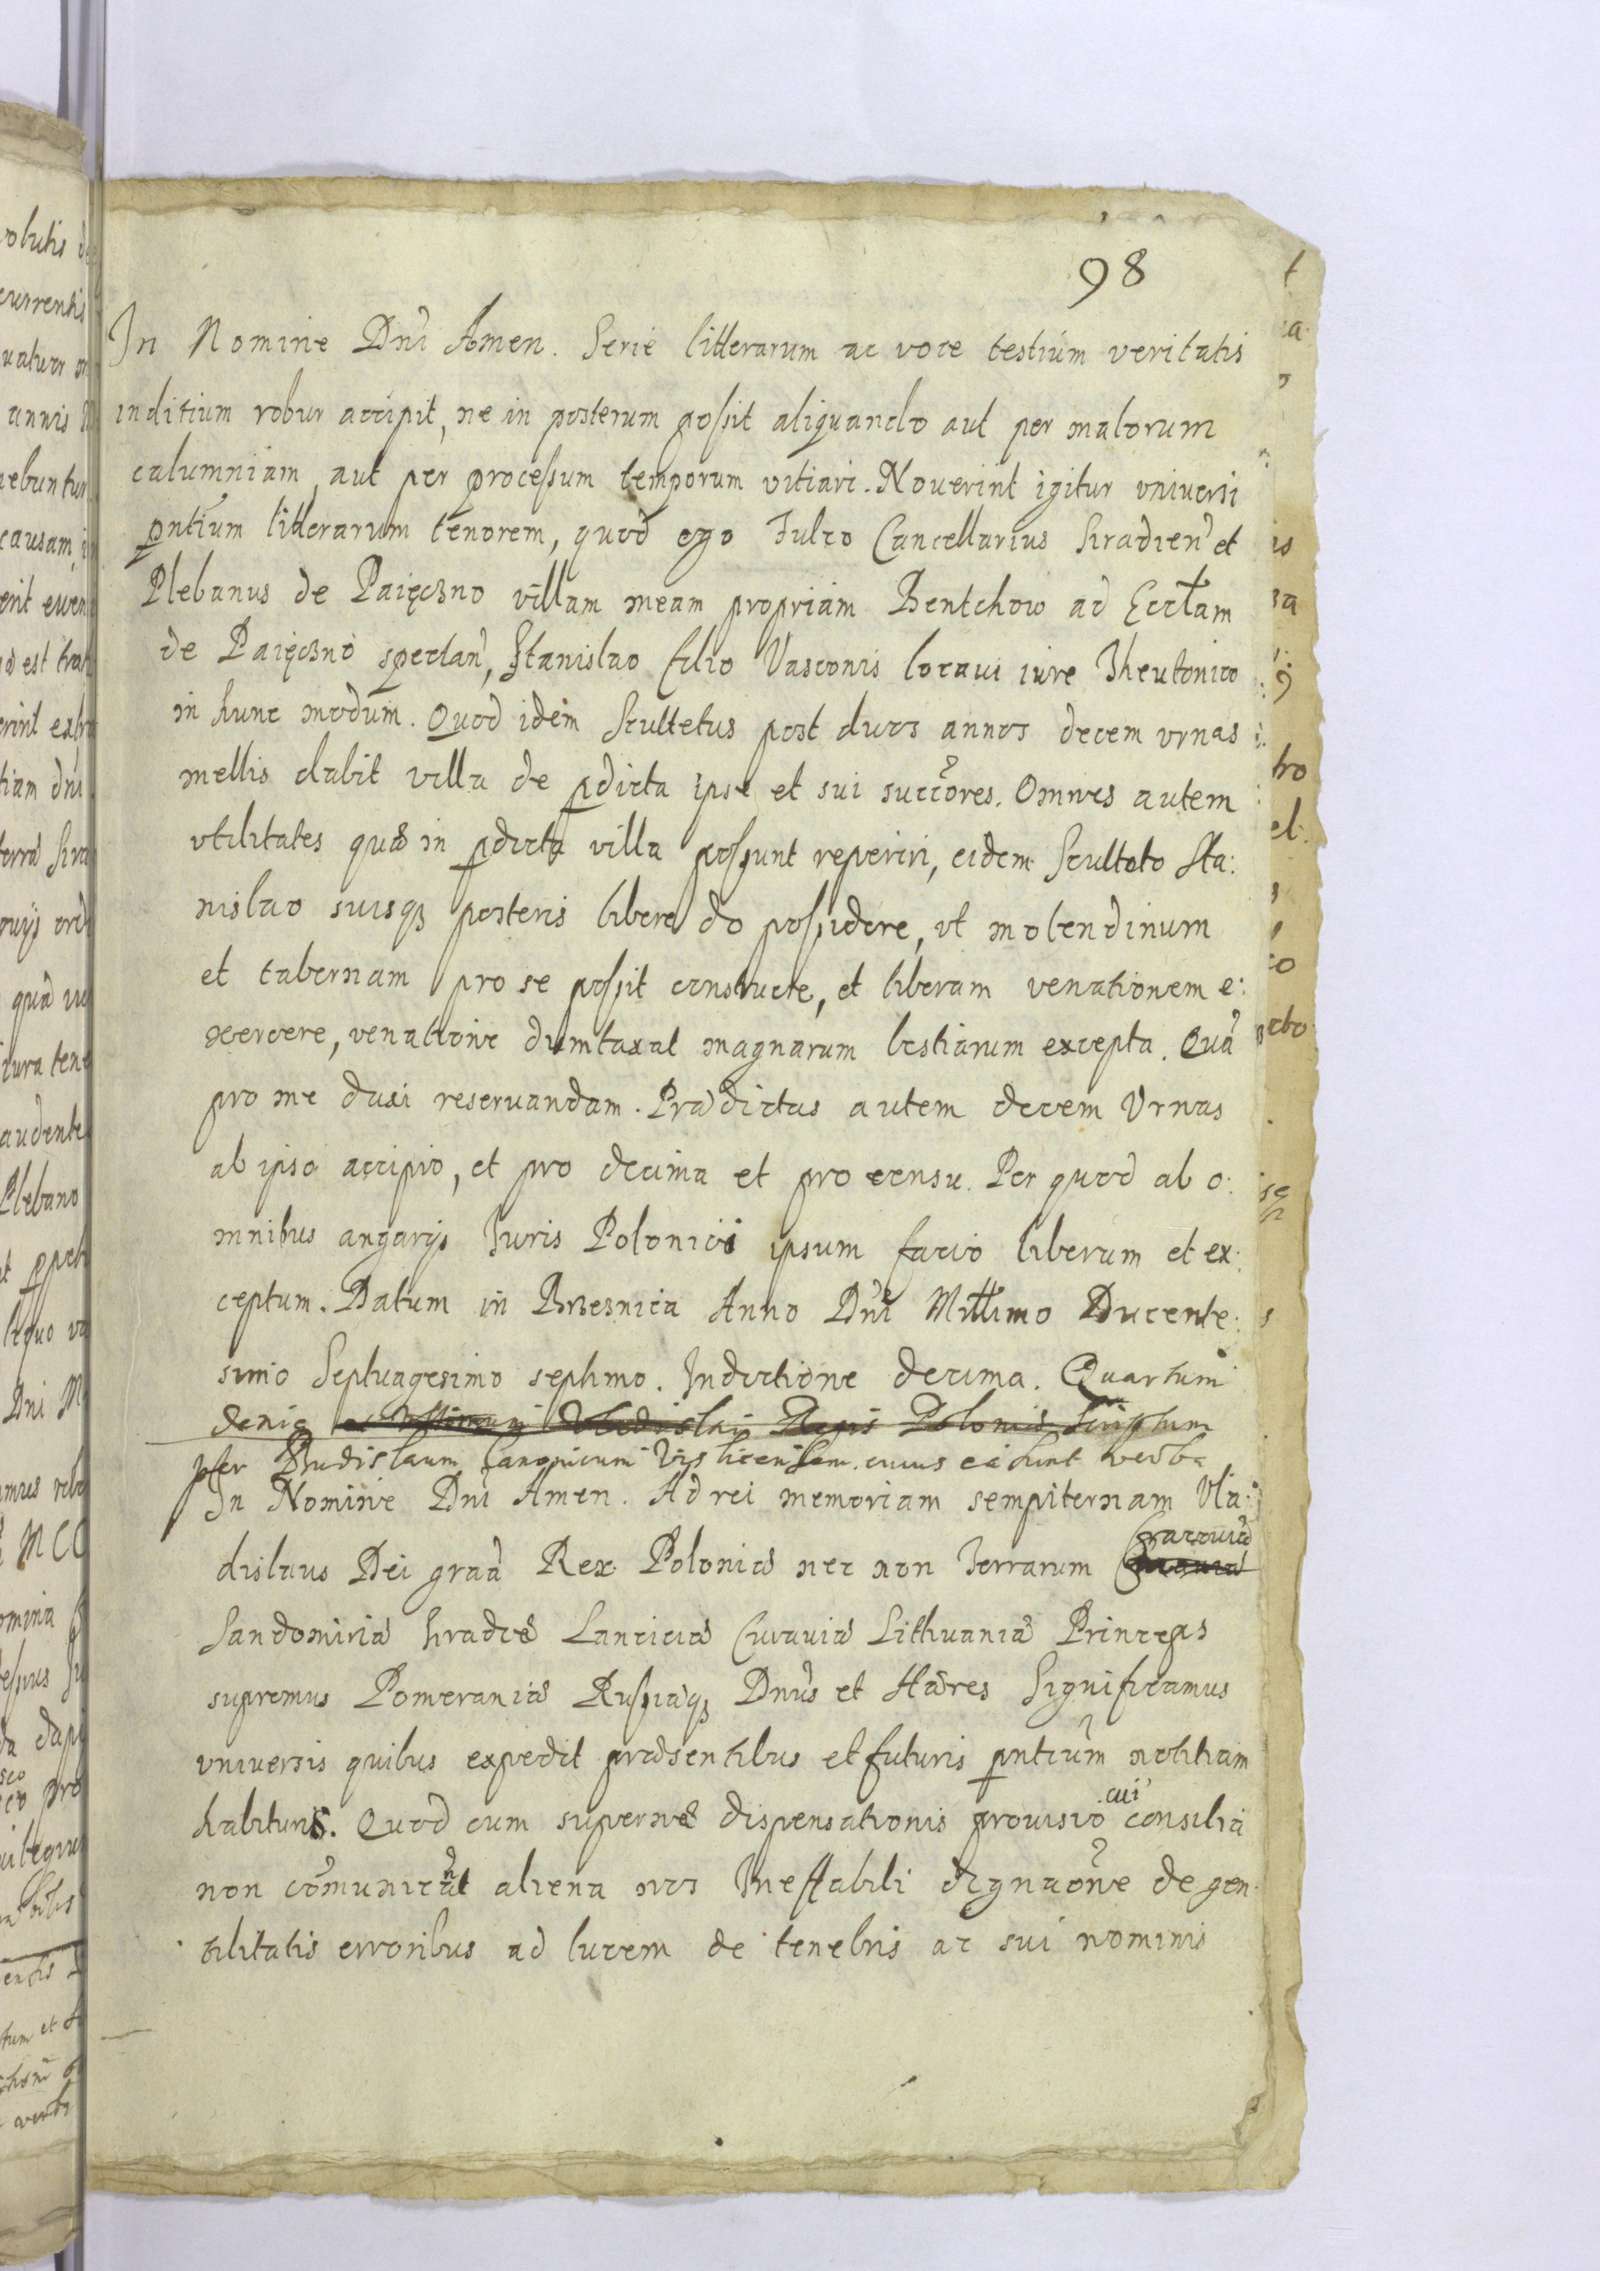 98
In Nomine Dni Amen. Serie litterarum ac voce testium veritatis
inditium robur accipit, ne in posterum possit aliquando aut per malorum
calumniam, aut per processum temporum vitiari. Noverint igitur vniversi
pntium litterarum tenorem, quod ego Fulco Cancellarius Siradien et
Plebanus de Paięczno villam meam propriam Bentchow ad Eccłam
de Paięczno spectan, Stanislao filio Vasconis locavi iure Theutonico
in hunc modum. Quod idem Scultetus post duos annos decem vrnas
mellis dabit villa de pdicta ipse et sui succores. Omnes autem
vtilitates quæ in pdicta villa possunt reperiri, eidem Sculteto Sta:
nislao suisq posteris libere do possidere, vt molendinum
et tabernam pro se possit construere, et liberam venationem e:
xercere, venatione dumtaxat magnarum bestiarum excepta. Quã
pro me duxi reservandam. Prædictas autem decem Vrnas
ab ipso accipio, et pro decima et pro censu. Per quod ab o:
mnibus angarijs Iuris Polonici ipsum facio liberum et ex:
ceptum. Datum in Brzesnica Anno Dni Millimo Ducente:
simo Septuagesimo septimo. Indictione decima. Quartum
deniq Vladislai Regis Poloniæ scriptum
per Budislaum Canonicum Vislicensem. cuius ea sunt verba
In Nomine Dni Amen. Ad rei memoriam sempiternam Vla:
dislaus Dei graã Rex Poloniæ nec non Terrarum Cracoviæ
Sandomiriæ Siradiæ Lanciciæ Cuiaviæ Lithuaniæ Princeps
supremus Pomeraniæ Russiæq Dnus et Hæres Significamus
vniversis quibus expedit præsentibus et futuris pntium notitiam
habituris. Quod cum supernæ dispensationis provisio cui consilia
non comunicant aliena nos Ineffabili dignaone de gen
tilitatis erroribus ad lucem de tenebris ac sui nominis